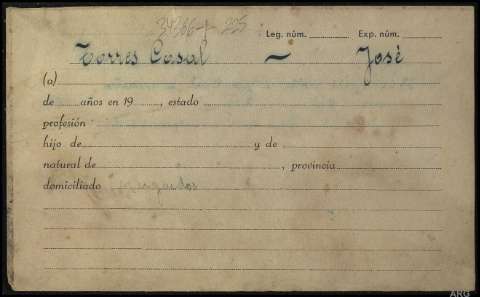 34366-1-225
Leg. núm. Exp. núm.
Torres Casal — José
(a)
de años en 19 , estado
profesión
hijo de y de
natural de , provincia
domiciliado
ARG